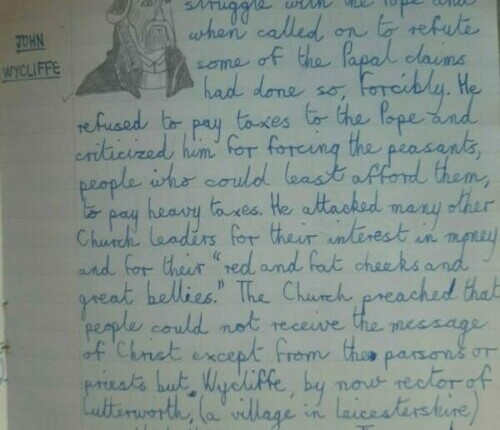 JOHN
WYCLIFFE
struggle with the Pope and
when called on to refute
some of the Papal claims
had done so, forcibly. He
refused to pay taxes to the Pope and
criticized him for forcing the peasants,
people who could least afford them,
to pay heavy taxes. He attacked many other
Church leaders for their interest in money
and for their "red and fat cheeks and
great bellies." The Church preached that
people could not receive the message
of Christ except from the parsons or
priests but Wycliffe, by now rector of
Lutterworth, (a village in Leicestershire)